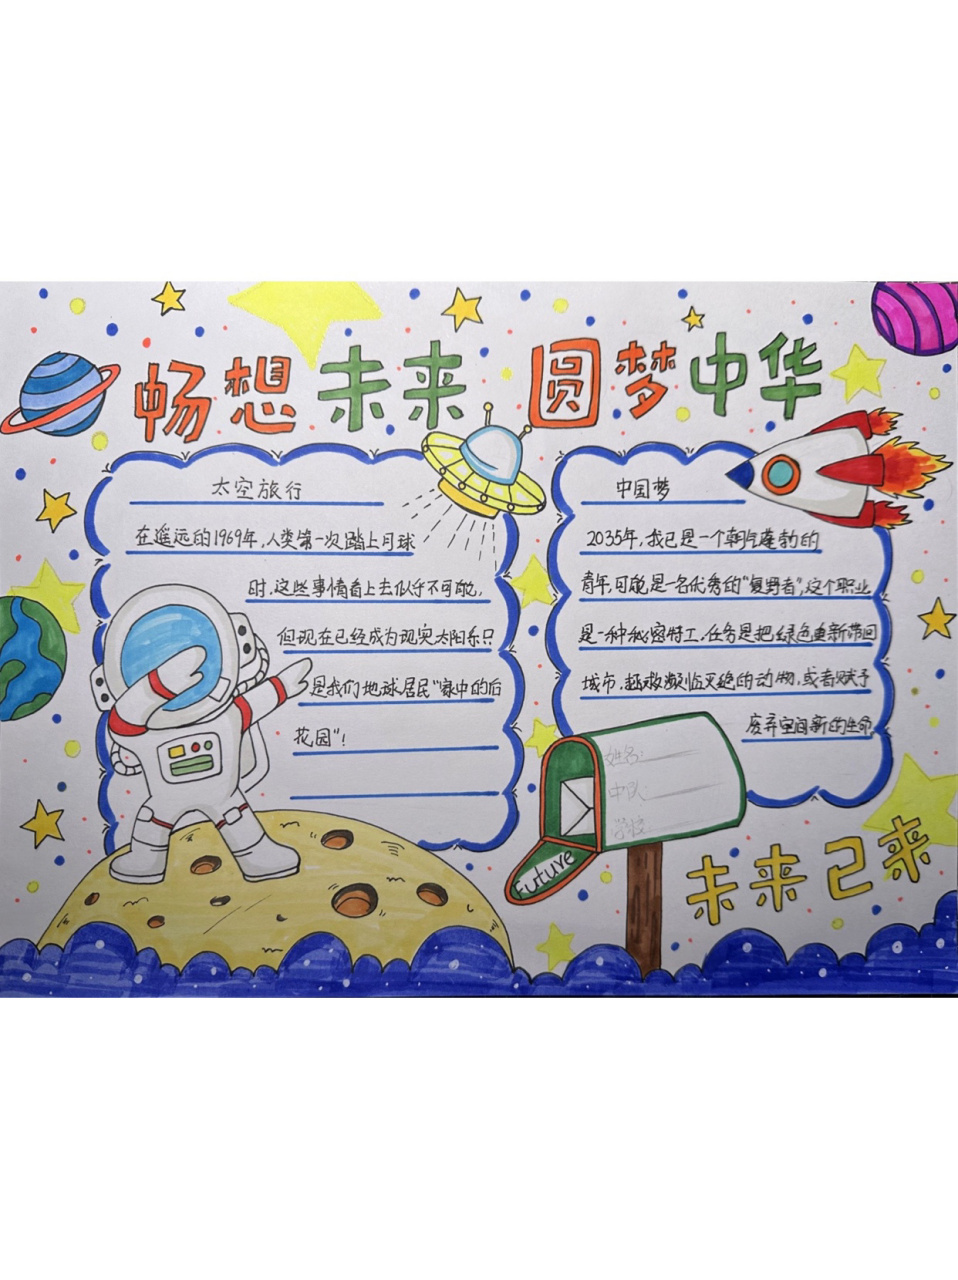 畅想未来 圆梦中华
太空旅行
在遥远的1969年,人类第一次踏上月球
时,这些事情看上去似乎不可能,
但现在已经成为现实太阳系只
是我们地球居民"家中的后
花园"!
中国梦
2035年,我已是一个朝气蓬勃的
青年,可能是一名优秀的"复野者",这个职业
是一种秘密特工,任务是把绿色重新带回
城市,拯救濒临灭绝的动物,或者赋予
废弃空间新的生命
姓名:
中队:
学校:
Future
未来已来